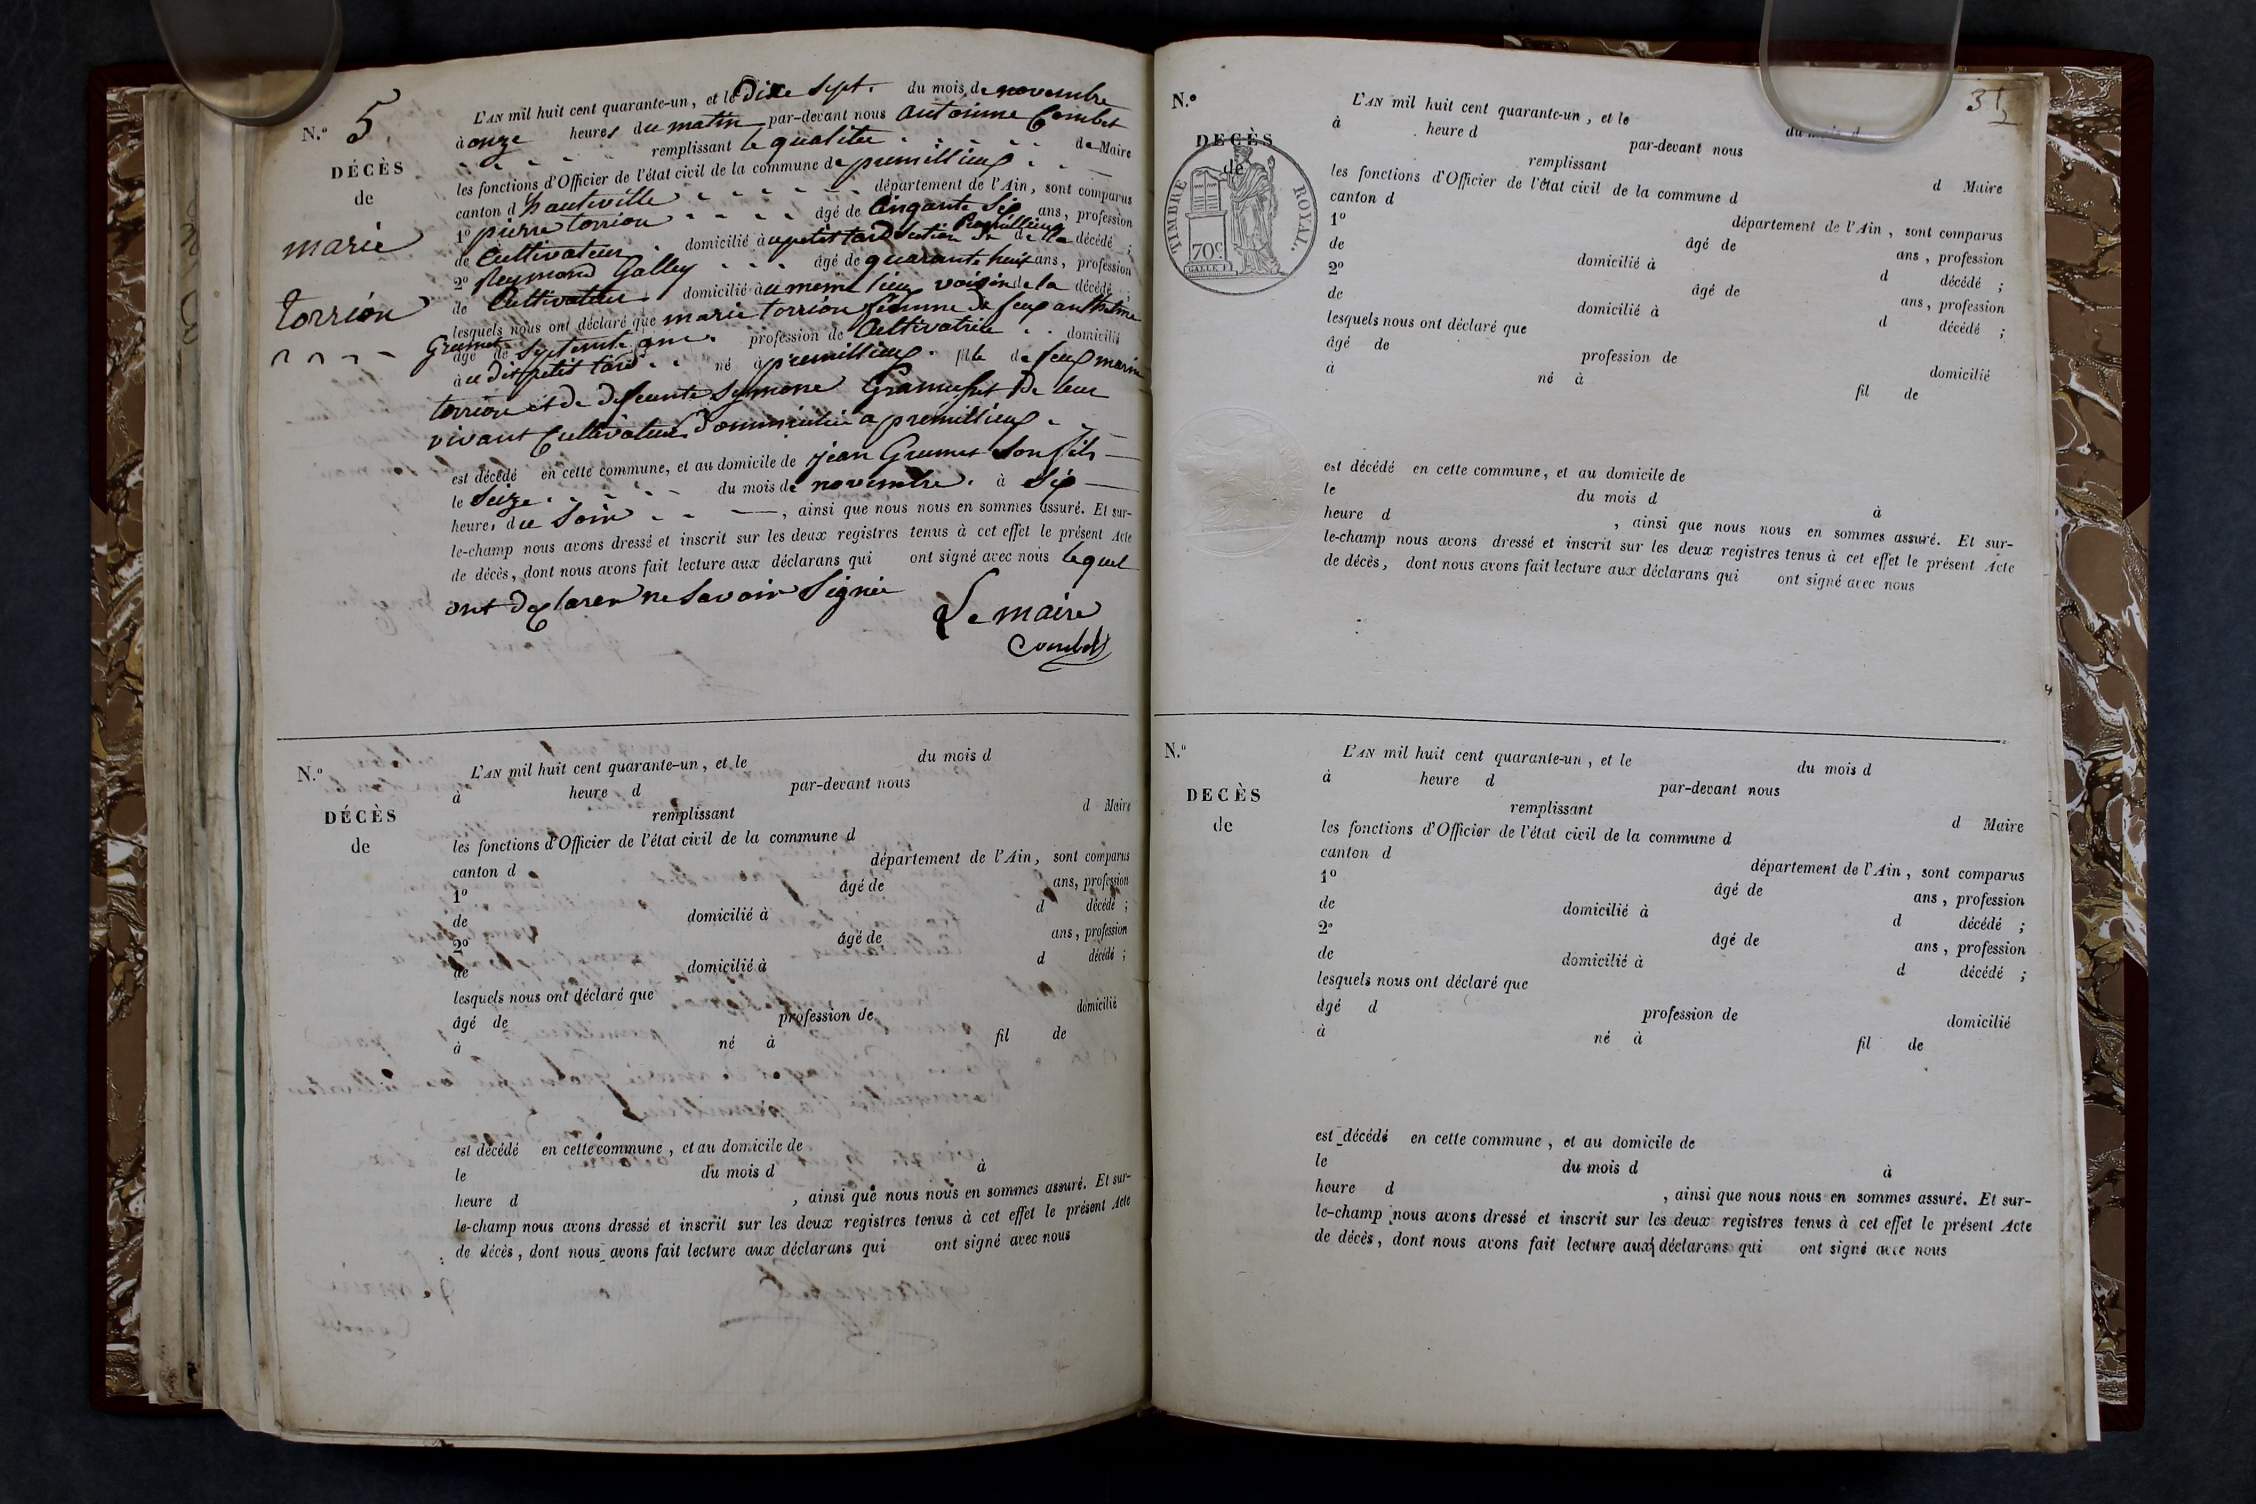 N.º 5
DÉCÈS
de
marie
torrion
L'AN mil huit cent quarante-un, et le Dixe Sept. du mois de novembre
à onze heures du matin par-devant nous antoinne Combet
remplissant le qualitee de Maire
les fonctions d'Officier de l'état civil de la commune de premillieux
canton d hauteville département de l'Ain, sont comparus
1º pierre torrion âgé de Cinqante Six ans, profession
de Cultivateur domicilié à u petit tard Section de Premillieux de la décédé ;
2º Reymond Galley âgé de quarante huit ans, profession
de Cultivateur domicilié à u meme lieux voisin de la décédé ;
lesquels nous ont déclaré que marie torrion femme de feux anthelme
Grumet âgé de Septente ans profession de Cultivatrice domicilié
à u dit petit tard né à premillieux fille de feux marin
torrion et de deffeunte Symone Gramusset De leur
vivant Cultivateur Dommicilié a premillieux
est décédé en cette commune, et au domicile de jean Grumet Son fils
le Seize du mois de novembre à Six
heures du Soir, ainsi que nous nous en sommes assuré. Et sur-
le-champ nous avons dressé et inscrit sur les deux registres tenus à cet effet le présent Acte
de décès, dont nous avons fait lecture aux déclarans qui ont signé avec nous lequel
ont declarer ne Savoir Signée
Le maire
Combet
N.º
DÉCÈS
de
L'AN mil huit cent quarante-un, et le du mois d
à heure d par-devant nous
remplissant d Maire
les fonctions d'Officier de l'état civil de la commune d
canton d département de l'Ain, sont comparus
1º âgé de ans, profession
de domicilié à d décédé ;
2º âgé de ans, profession
de domicilié à d décédé ;
lesquels nous ont déclaré que
âgé de profession de domicilié
à né à fil de
est décédé en cette commune, et au domicile de
le du mois d à
heure d , ainsi que nous nous en sommes assuré. Et sur-
le-champ nous avons dressé et inscrit sur les deux registres tenus à cet effet le présent Acte
de décès, dont nous avons fait lecture aux déclarans qui ont signé avec nous
31/2
N.º
DECÈS
de
TIMBRE ROYAL.
70 c.
L'AN mil huit cent quarante-un, et le du mois d
à heure d par-devant nous
remplissant d Maire
les fonctions d'Officier de l'état civil de la commune d
canton d département de l'Ain, sont comparus
1º âgé de ans, profession
de domicilié à d décédé ;
2º âgé de ans, profession
de domicilié à d décédé ;
lesquels nous ont déclaré que
âgé de profession de domicilié
à né à fil de
est décédé en cette commune, et au domicile de
le du mois d à
heure d , ainsi que nous nous en sommes assuré. Et sur-
le-champ nous avons dressé et inscrit sur les deux registres tenus à cet effet le présent Acte
de décès, dont nous avons fait lecture aux déclarans qui ont signé avec nous
N.º
DECÈS
de
L'AN mil huit cent quarante-un, et le du mois d
à heure d par-devant nous
remplissant d Maire
les fonctions d'Officier de l'état civil de la commune d
canton d département de l'Ain, sont comparus
1º âgé de ans, profession
de domicilié à d décédé ;
2º âgé de ans, profession
de domicilié à d décédé ;
lesquels nous ont déclaré que
âgé d profession de domicilié
à né à fil de
est décédé en cette commune, et au domicile de
le du mois d à
heure d , ainsi que nous nous en sommes assuré. Et sur-
le-champ nous avons dressé et inscrit sur les deux registres tenus à cet effet le présent Acte
de décès, dont nous avons fait lecture aux déclarans qui ont signé avec nous